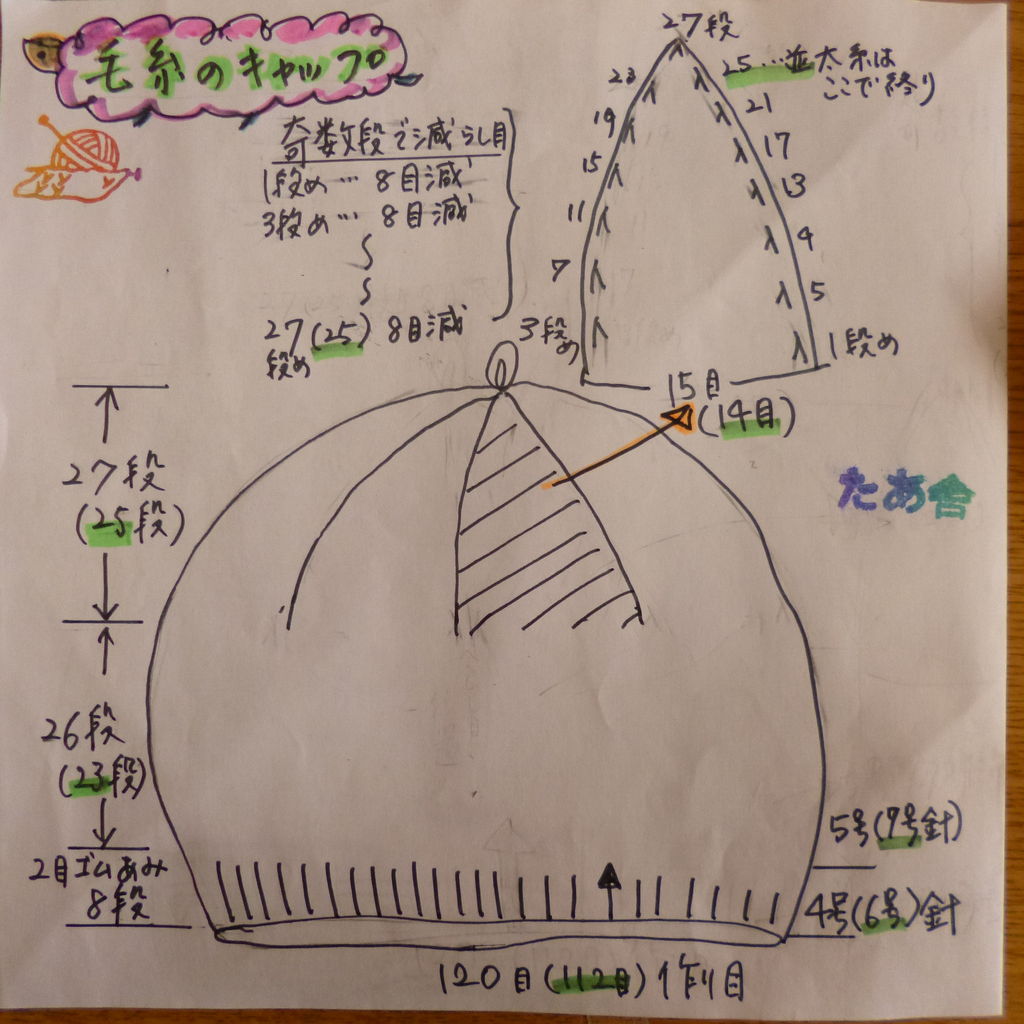 毛糸のキャップ
奇数段で減らし目
1段め… 8目減
3段め… 8目減
27(25) 8目減
段め
27段
25…並太糸は
ここで終り
23
21
19
17
15
13
11
9
7
5
3段め
1段め
15目
(14目)
27段
(25段)
たあ舎
26段
(23段)
5号(7号針)
2目ゴムあみ
8段
4号(6号)針
120目(112目)作り目